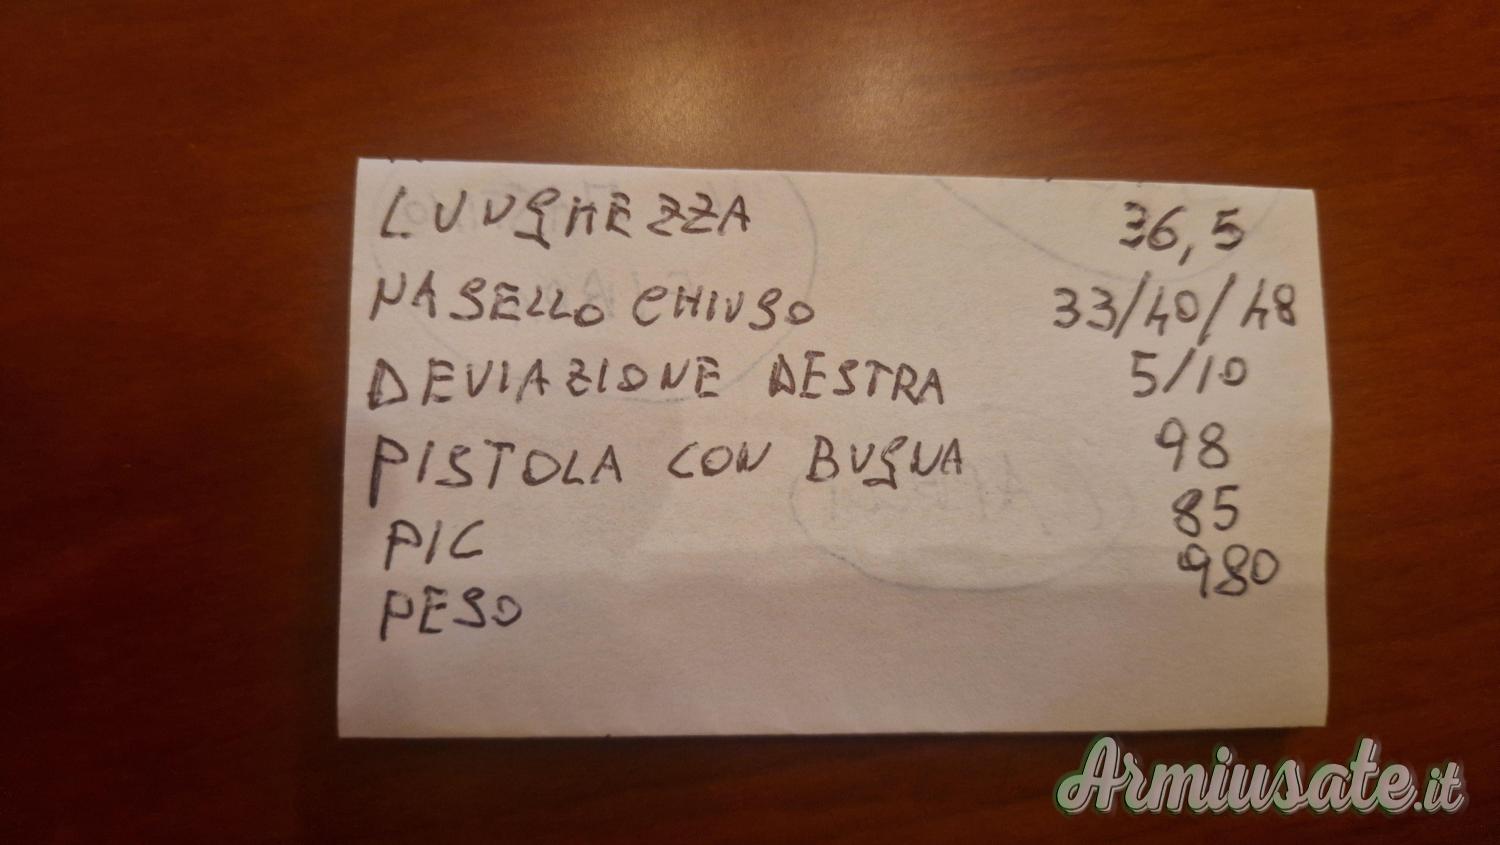 LUNGHEZZA 36,5
NASELLO CHIUSO 33/40/48
DEVIAZIONE DESTRA 5/10
PISTOLA CON BUGNA 98
PIC 85
PESO 980
Armiusate.it